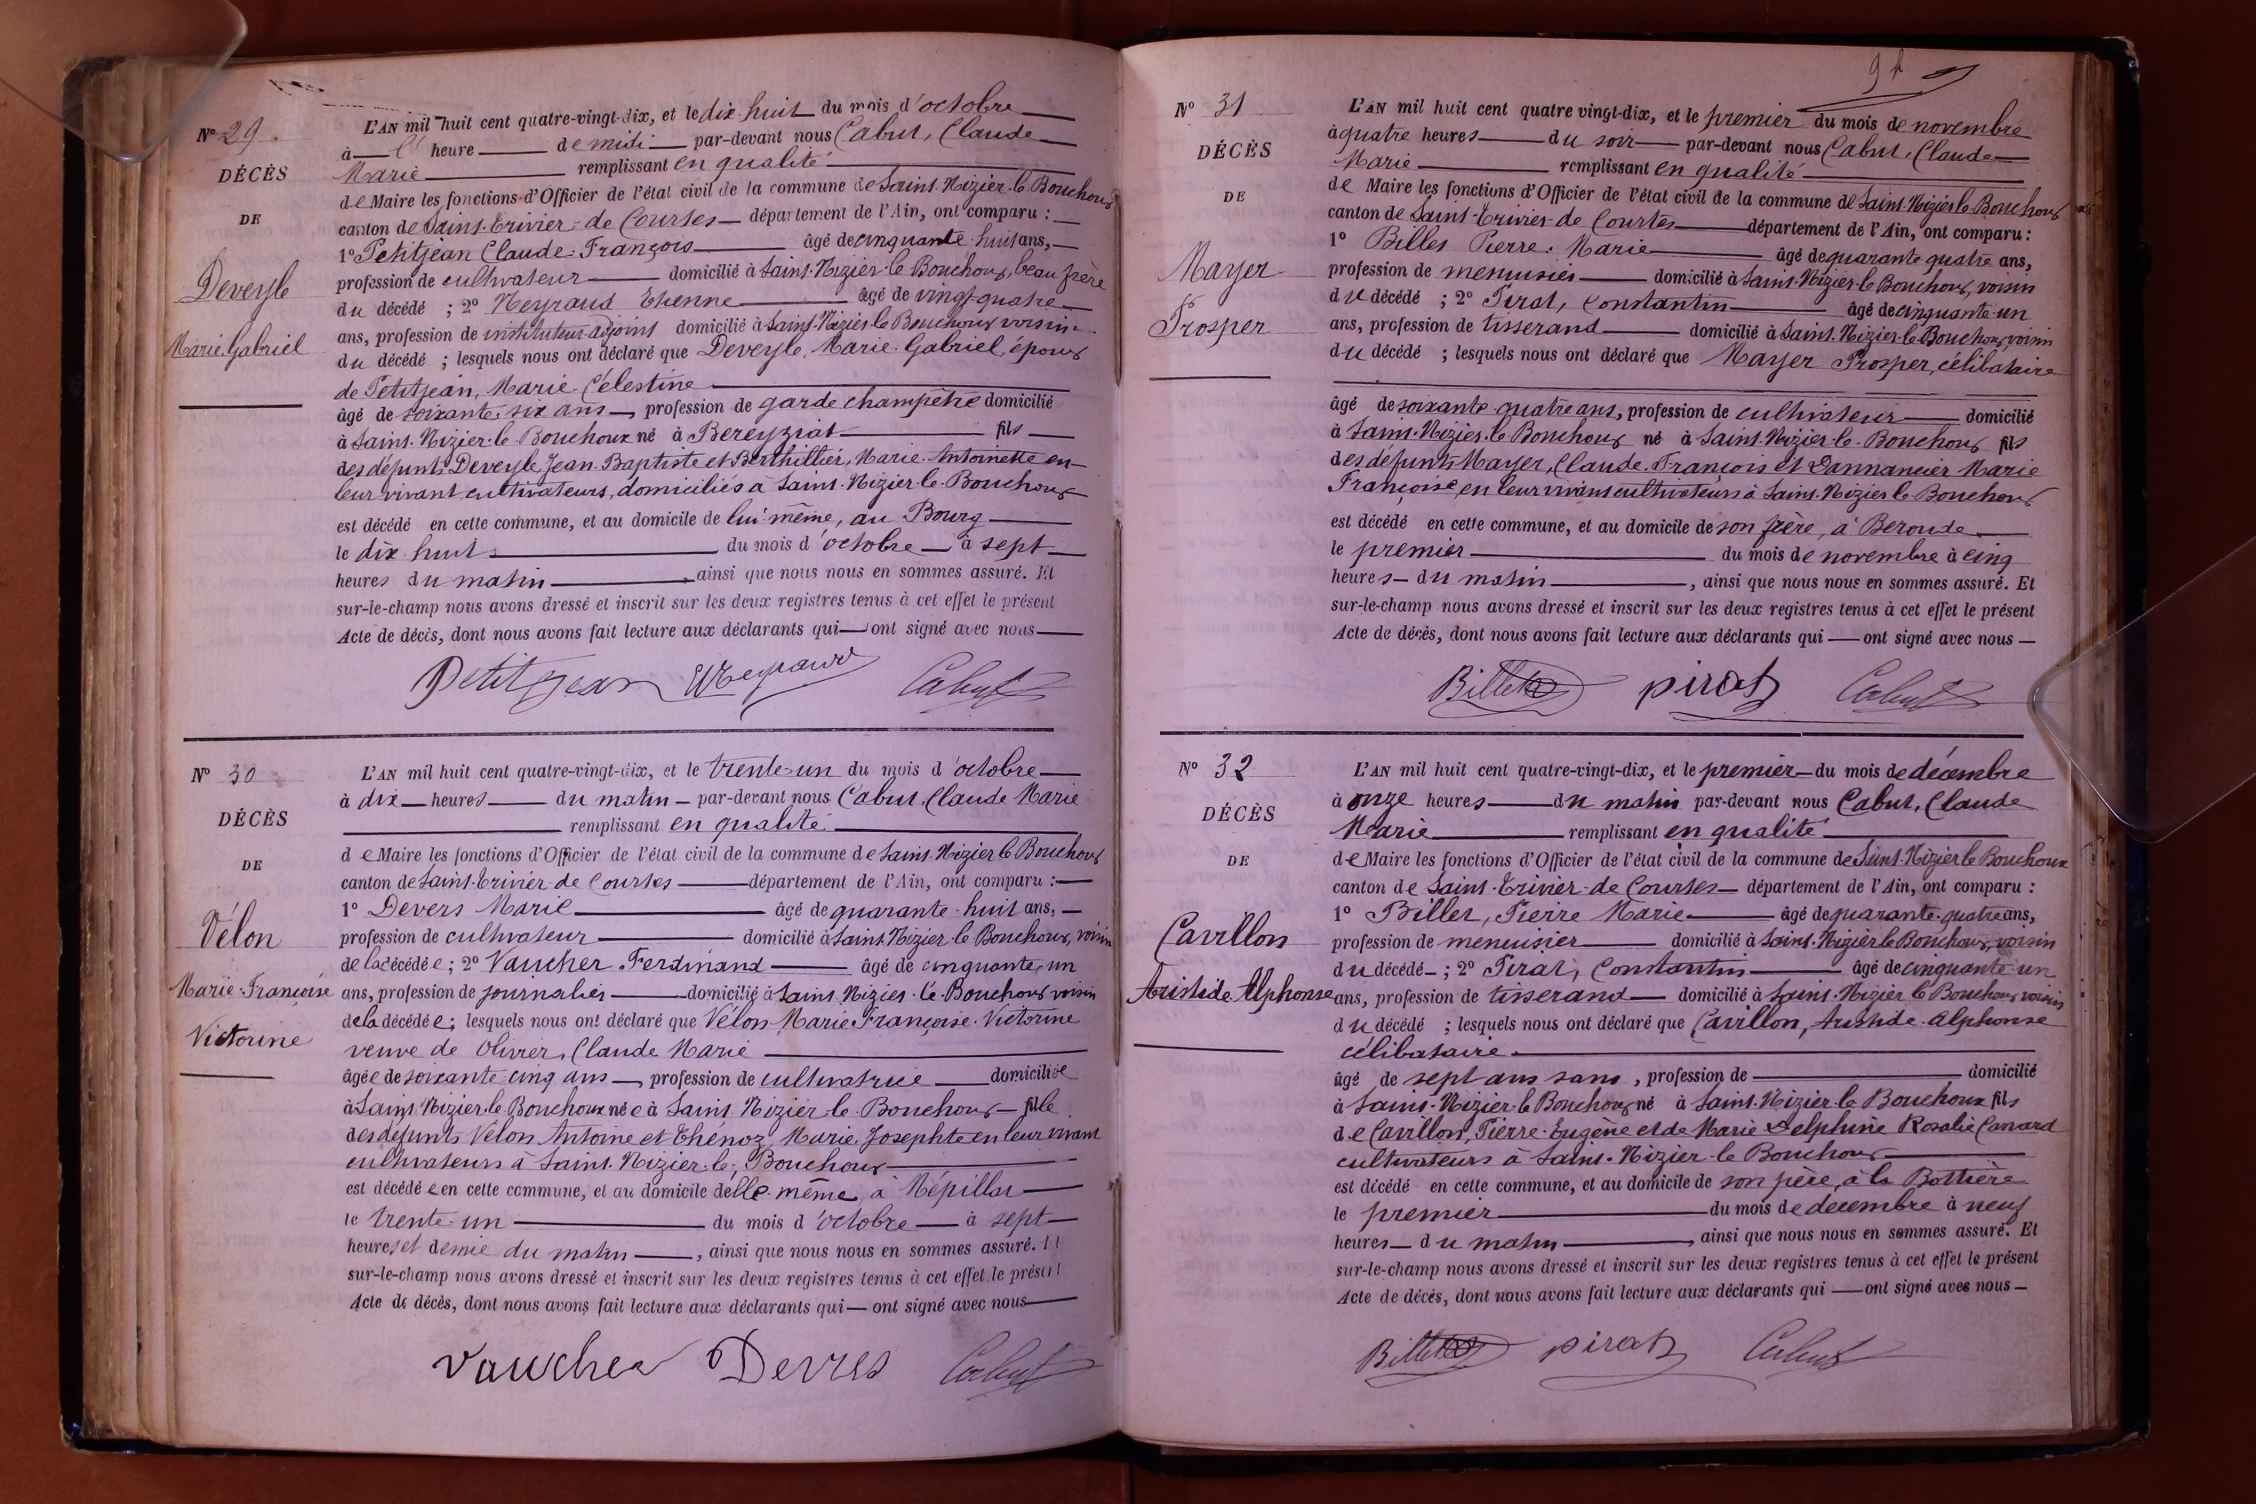 Nº 29
DÉCÈS
DE
Deveyle
Marie Gabriel
L'AN mil huit cent quatre-vingt-dix, et le dix huit du mois d'octobre
à heure de midi par-devant nous Cabut, Claude
Marie remplissant en qualité
de Maire les fonctions d'Officier de l'état civil de la commune de Saint-Nizier-le Bouchoux
canton de Saint-Trivier-de Courtes département de l'Ain, ont comparu :
1º Petitjean Claude-François âgé de cinquante-huit ans,
profession de cultivateur domicilié à Saint-Nizier-le Bouchoux, beau frère
du décédé ; 2º Neyraud Etienne âgé de vingt-quatre
ans, profession de instituteur-adjoint domicilié à Saint-Nizier le Bouchoux voisin
du décédé ; lesquels nous ont déclaré que Deveyle, Marie-Gabriel, époux
de Petitjean, Marie-Célestine
âgé de soixante-six ans, profession de garde champêtre domicilié
à Saint-Nizier-le Bouchoux né à Béréyziat fils
des défunts Deveyle Jean-Baptiste et Berthillier, Marie-Antoinette en
leur vivant cultivateurs, domiciliés à Saint-Nizier-le-Bouchoux
est décédé en cette commune, et au domicile de lui-même, au Bourg
le dix huit du mois d'octobre à sept
heures du matin, ainsi que nous nous en sommes assuré. Et
sur-le-champ nous avons dressé et inscrit sur les deux registres tenus à cet effet le présent
Acte de décès, dont nous avons fait lecture aux déclarants qui ont signé avec nous
Petitjean ENeyraud Cabut
Nº 30
DÉCÈS
DE
Vélon
Marie-Françoise
Victorine
L'AN mil huit cent quatre-vingt-dix, et le trente-un du mois d'octobre
à dix heures du matin par-devant nous Cabut, Claude Marie
remplissant en qualité
de Maire les fonctions d'Officier de l'état civil de la commune de Saint-Nizier le Bouchoux
canton de Saint-Trivier-de Courtes département de l'Ain, ont comparu :
1º Devers Marie âgé de quarante-huit ans,
profession de cultivateur domicilié à Saint-Nizier-le Bouchoux, voisin
de la décédée ; 2º Vaucher Ferdinand âgé de cinquante-un
ans, profession de journalier domicilié à Saint-Nizier-le-Bouchoux voisin
de la décédée ; lesquels nous ont déclaré que Vélon Marie Françoise-Victorine
veuve de Olivier, Claude Marie
âgée de soixante cinq ans, profession de cultivatrice domiciliée
à Saint Nizier-le Bouchoux née à Saint Nizier-le-Bouchoux fille
des défunts Velon Antoine et Thénoz, Marie-Josephte en leur vivant
cultivateurs à Saint-Nizier-le-Bouchoux
est décédée en cette commune, et au domicile d'elle-même, à Népillat
le trente-un du mois d'octobre à sept
heures et demie du matin, ainsi que nous nous en sommes assuré. Et
sur-le-champ nous avons dressé et inscrit sur les deux registres tenus à cet effet le présent
Acte de décès, dont nous avons fait lecture aux déclarants qui ont signé avec nous
Vaucher Devers Cabut
Nº 31
DÉCÈS
DE
Mayer
Prosper
L'AN mil huit cent quatre vingt-dix, et le premier du mois de novembre
à quatre heures du soir par-devant nous Cabut, Claude
Marie remplissant en qualité
de Maire les fonctions d'Officier de l'état civil de la commune de Saint-Nizier-le-Bouchoux
canton de Saint-Trivier-de Courtes département de l'Ain, ont comparu :
1º Billet Pierre-Marie âgé de quarante quatre ans,
profession de menuisier domicilié à Saint-Nizier-le Bouchoux, voisin
du décédé ; 2º Pirat, Constantin âgé de cinquante-un
ans, profession de tisserand domicilié à Saint-Nizier-le-Bouchoux voisin
du décédé ; lesquels nous ont déclaré que Mayer Prosper, célibataire
âgé de soixante-quatre ans, profession de cultivateur domicilié
à Saint-Nizier-le Bouchoux né à Saint-Nizier-le-Bouchoux fils
des défunts Mayer, Claude-François et Dannancier Marie
Françoise, en leur vivant cultivateurs à Saint-Nizier le Bouchoux
est décédé en cette commune, et au domicile de son frère, à Beroude
le premier du mois de novembre à cinq
heures du matin, ainsi que nous nous en sommes assuré. Et
sur-le-champ nous avons dressé et inscrit sur les deux registres tenus à cet effet le présent
Acte de décès, dont nous avons fait lecture aux déclarants qui ont signé avec nous
Billet pirat Cabut
Nº 32
DÉCÈS
DE
Cavillon
Aristide Alphonse
L'AN mil huit cent quatre-vingt-dix, et le premier du mois de décembre
à onze heures du matin par-devant nous Cabut, Claude
Marie remplissant en qualité
de Maire les fonctions d'Officier de l'état civil de la commune de Saint-Nizier le Bouchoux
canton de Saint-Trivier-de Courtes département de l'Ain, ont comparu :
1º Billet, Pierre Marie âgé de quarante-quatre ans,
profession de menuisier domicilié à Saint-Nizier le Bouchoux, voisin
du décédé ; 2º Pirat, Constantin âgé de cinquante-un
ans, profession de tisserand domicilié à Saint-Nizier le Bouchoux voisin
du décédé ; lesquels nous ont déclaré que Cavillon, Aristide-Alphonse
célibataire
âgé de sept ans sans, profession de domicilié
à Saint-Nizier-le Bouchoux né à Saint-Nizier-le Bouchoux fils
de Cavillon, Pierre-Eugène et de Marie Delphine Rosalie Canard
cultivateurs à Saint-Nizier-le Bouchoux
est décédé en cette commune, et au domicile de son père, à la Bottière
le premier du mois de decembre à neuf
heures du matin, ainsi que nous nous en sommes assuré. Et
sur-le-champ nous avons dressé et inscrit sur les deux registres tenus à cet effet le présent
Acte de décès, dont nous avons fait lecture aux déclarants qui ont signé avec nous
Billet pirat Cabut